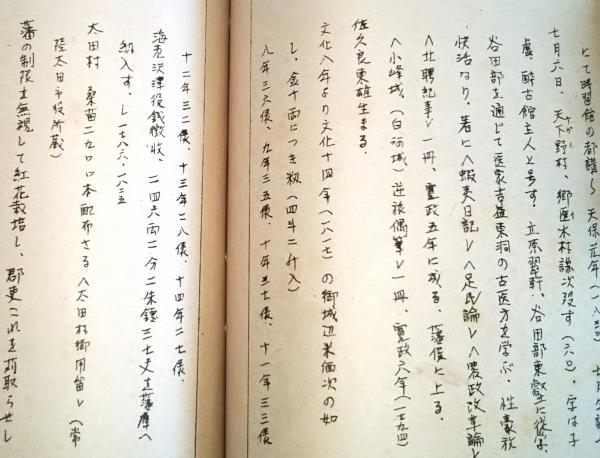 にて時習館の都講
七月六日、天下野村、郷医木村謙次没す(六〇)、字は子
虚、酔古館主人と号す。立原翠軒、谷田部東壑に従学、
谷田部を通じて医家吉益東洞の古医方を学ぶ、性豪放
快活なり、著に〈蝦夷日記〉〈足民論〉〈農政改革論〉
〈北聘記事〉一冊、寛政五年に成る、藩侯に上る。
〈小峰城、(白河城)逆旅偶筆〉一冊、寛政六年(一七九四)
佐久良東雄生まる。
文化八年より文化十四年(一八一七)の御城辺米価次の如
し、金十両につき籾(四斗二升入)
八年三六俵、九年三五俵、十年三七俵、十一年三三俵
十二年三二俵、十三年二八俵、十四年二七俵、
海老沢津役銭徴収、二四六両二分二朱鐚三七文を藩庫へ
納入す、し一七八六・一八三五
太田村 桑苗二九〇〇本配布さる〈太田村御用留〉(常
陸太田市役所蔵)
藩の制限を無視して紅花栽培し、郡吏これを苅取らせし